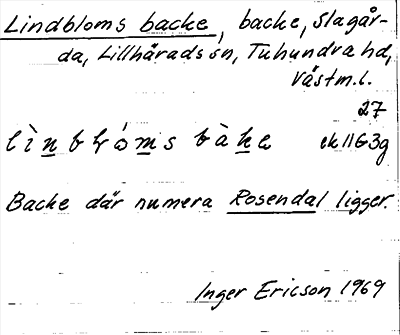 Lindbloms backe, backe, Slagår-
da, Lillhärads sn, Tuhundra hd,
Västm. l.
27
ek 11G3g
Backe där numera Rosendal ligger.
Inger Ericson 1969